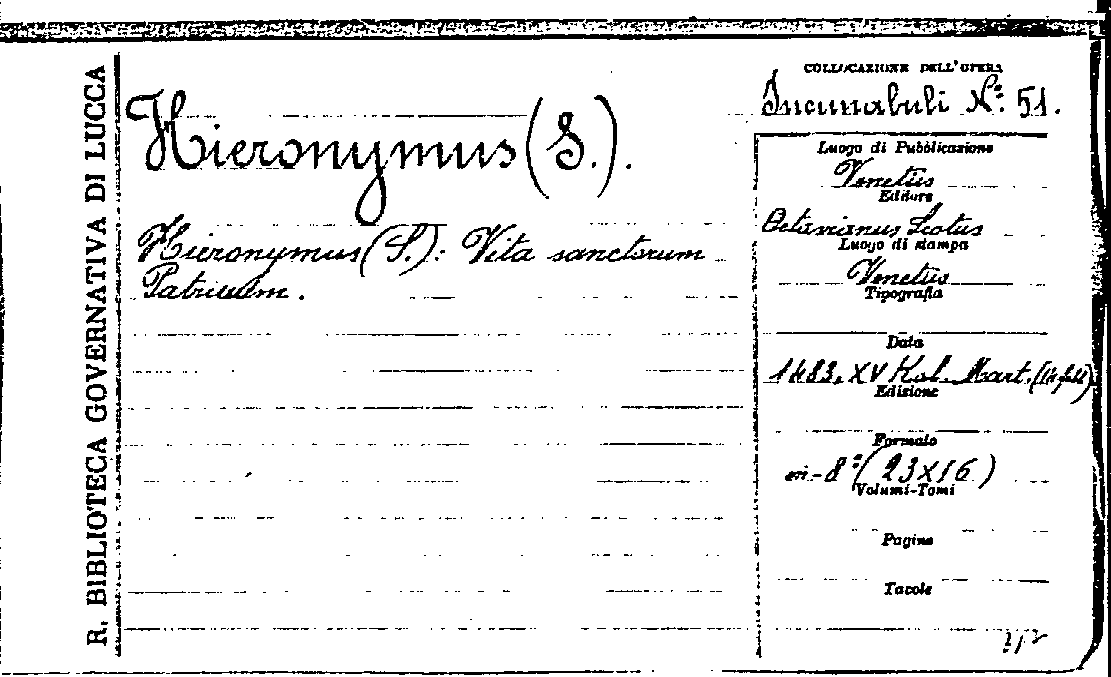 R. BIBLIOTECA GOVERNATIVA DI LUCCA
Hieronymus (S.).
Hieronymus (S.): Vita sanctorum
Patruum.
COLLOCAZIONE DELL'OPERA
Incunabuli N.º 51.
Luogo di Pubblicazione
Venetiis
Editore
Octavianus Scotus
Luogo di stampa
Venetiis
Tipografia
Data
1483, XV Kal. Mart.
Edizione
Formato
in-8º (23x16)
Volumi-Tomi
Pagine
Tavole